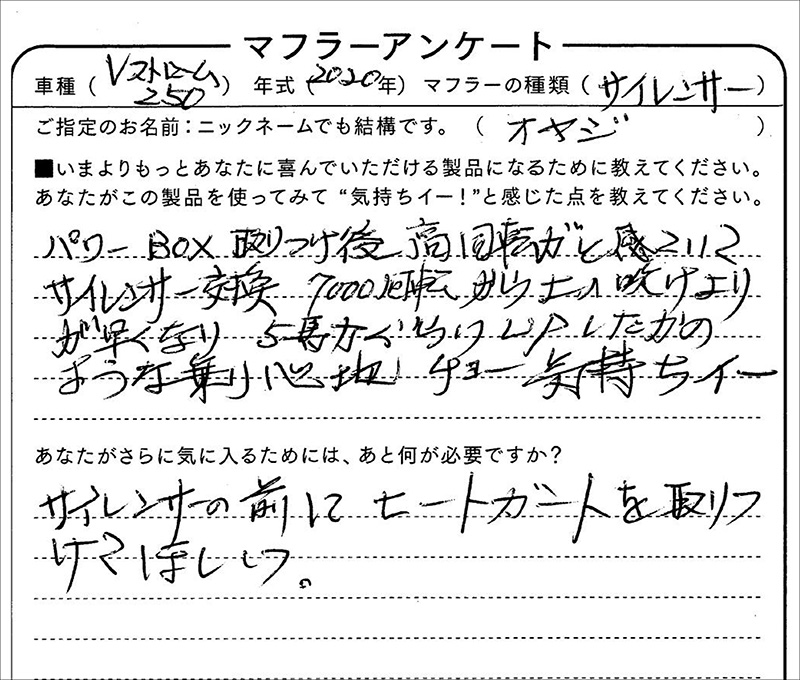 マフラーアンケート
車種（Vストローム250）　年式（2020年）　マフラーの種類（サイレンサー）
ご指定のお名前：ニックネームでも結構です。（オヤジ）
■いまよりもっとあなたに喜んでいただける製品になるために教えてください。
あなたがこの製品を使ってみて“気持ちイー！”と感じた点を教えてください。
パワーBOX取りつけ後 高回転が
サイレンサー交換 7000回転から 吹けより
が早くなり 5馬力ぐらいUPしたかの
ような乗り心地 チョー気持ちイー
あなたがさらに気に入るためには、あと何が必要ですか？
サイレンサーの前にヒートガードを取りつ
けてほしいっ。